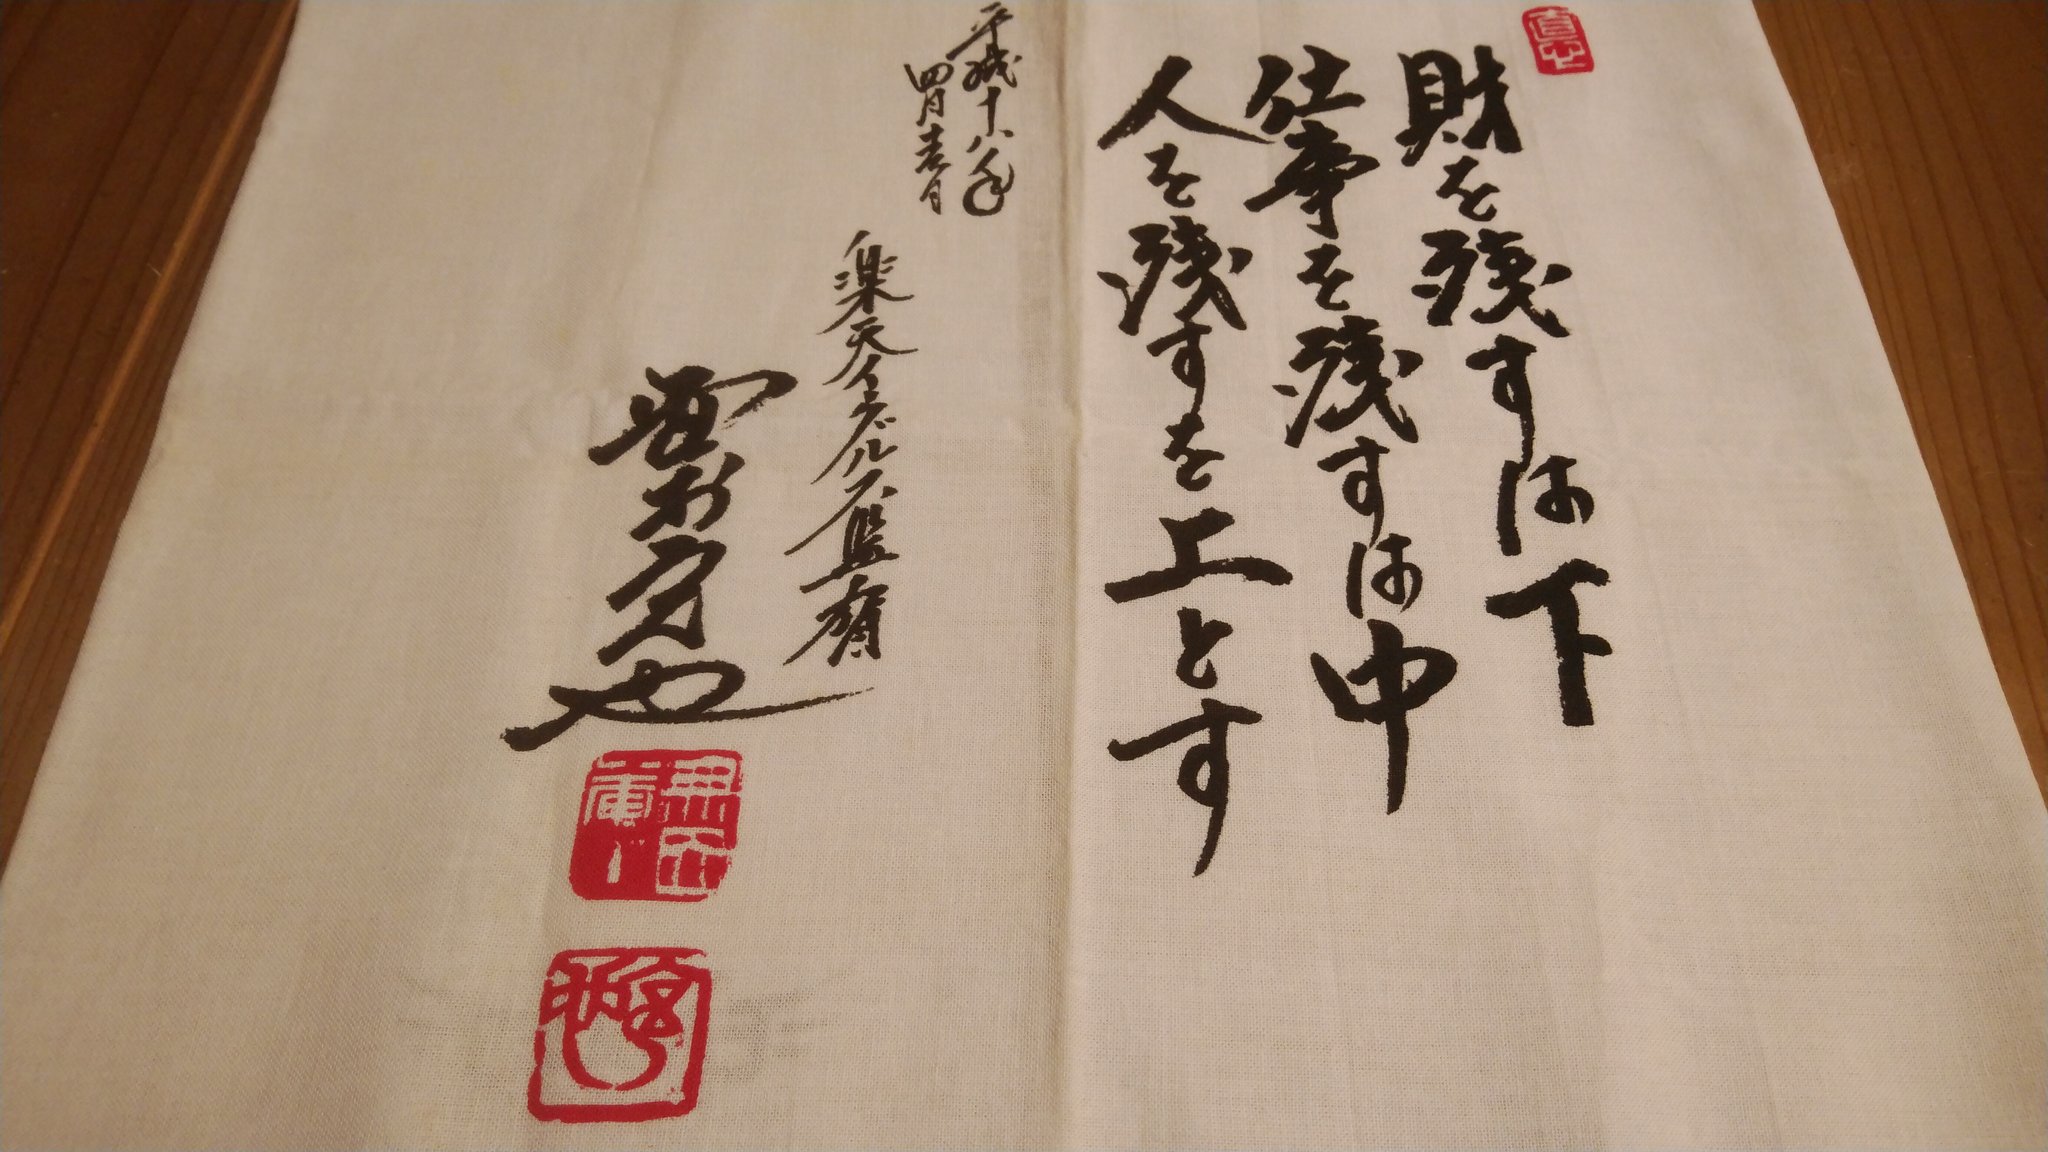 財を残すは下
仕事を残すは中
人を残すを上とす
平成十八年
四月吉日
楽天イーグルス監督
野村克也